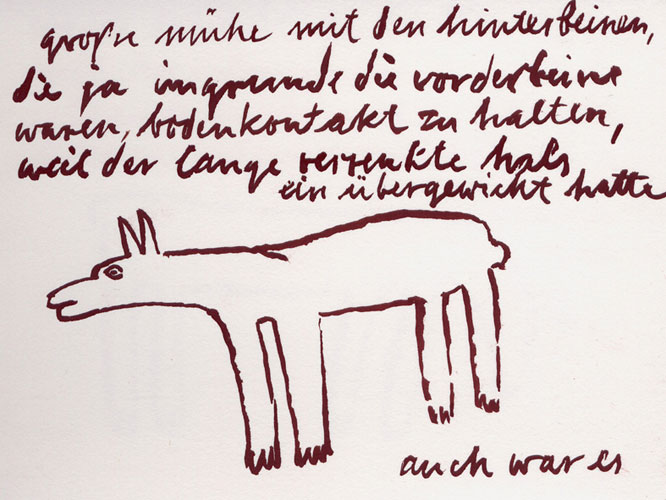 große mühe mit den hinterbeinen,
die ja imgrunde die vorderbeine
waren, bodenkontakt zu halten,
weil der lange verrenkte hals
ein übergewicht hatte
auch war es